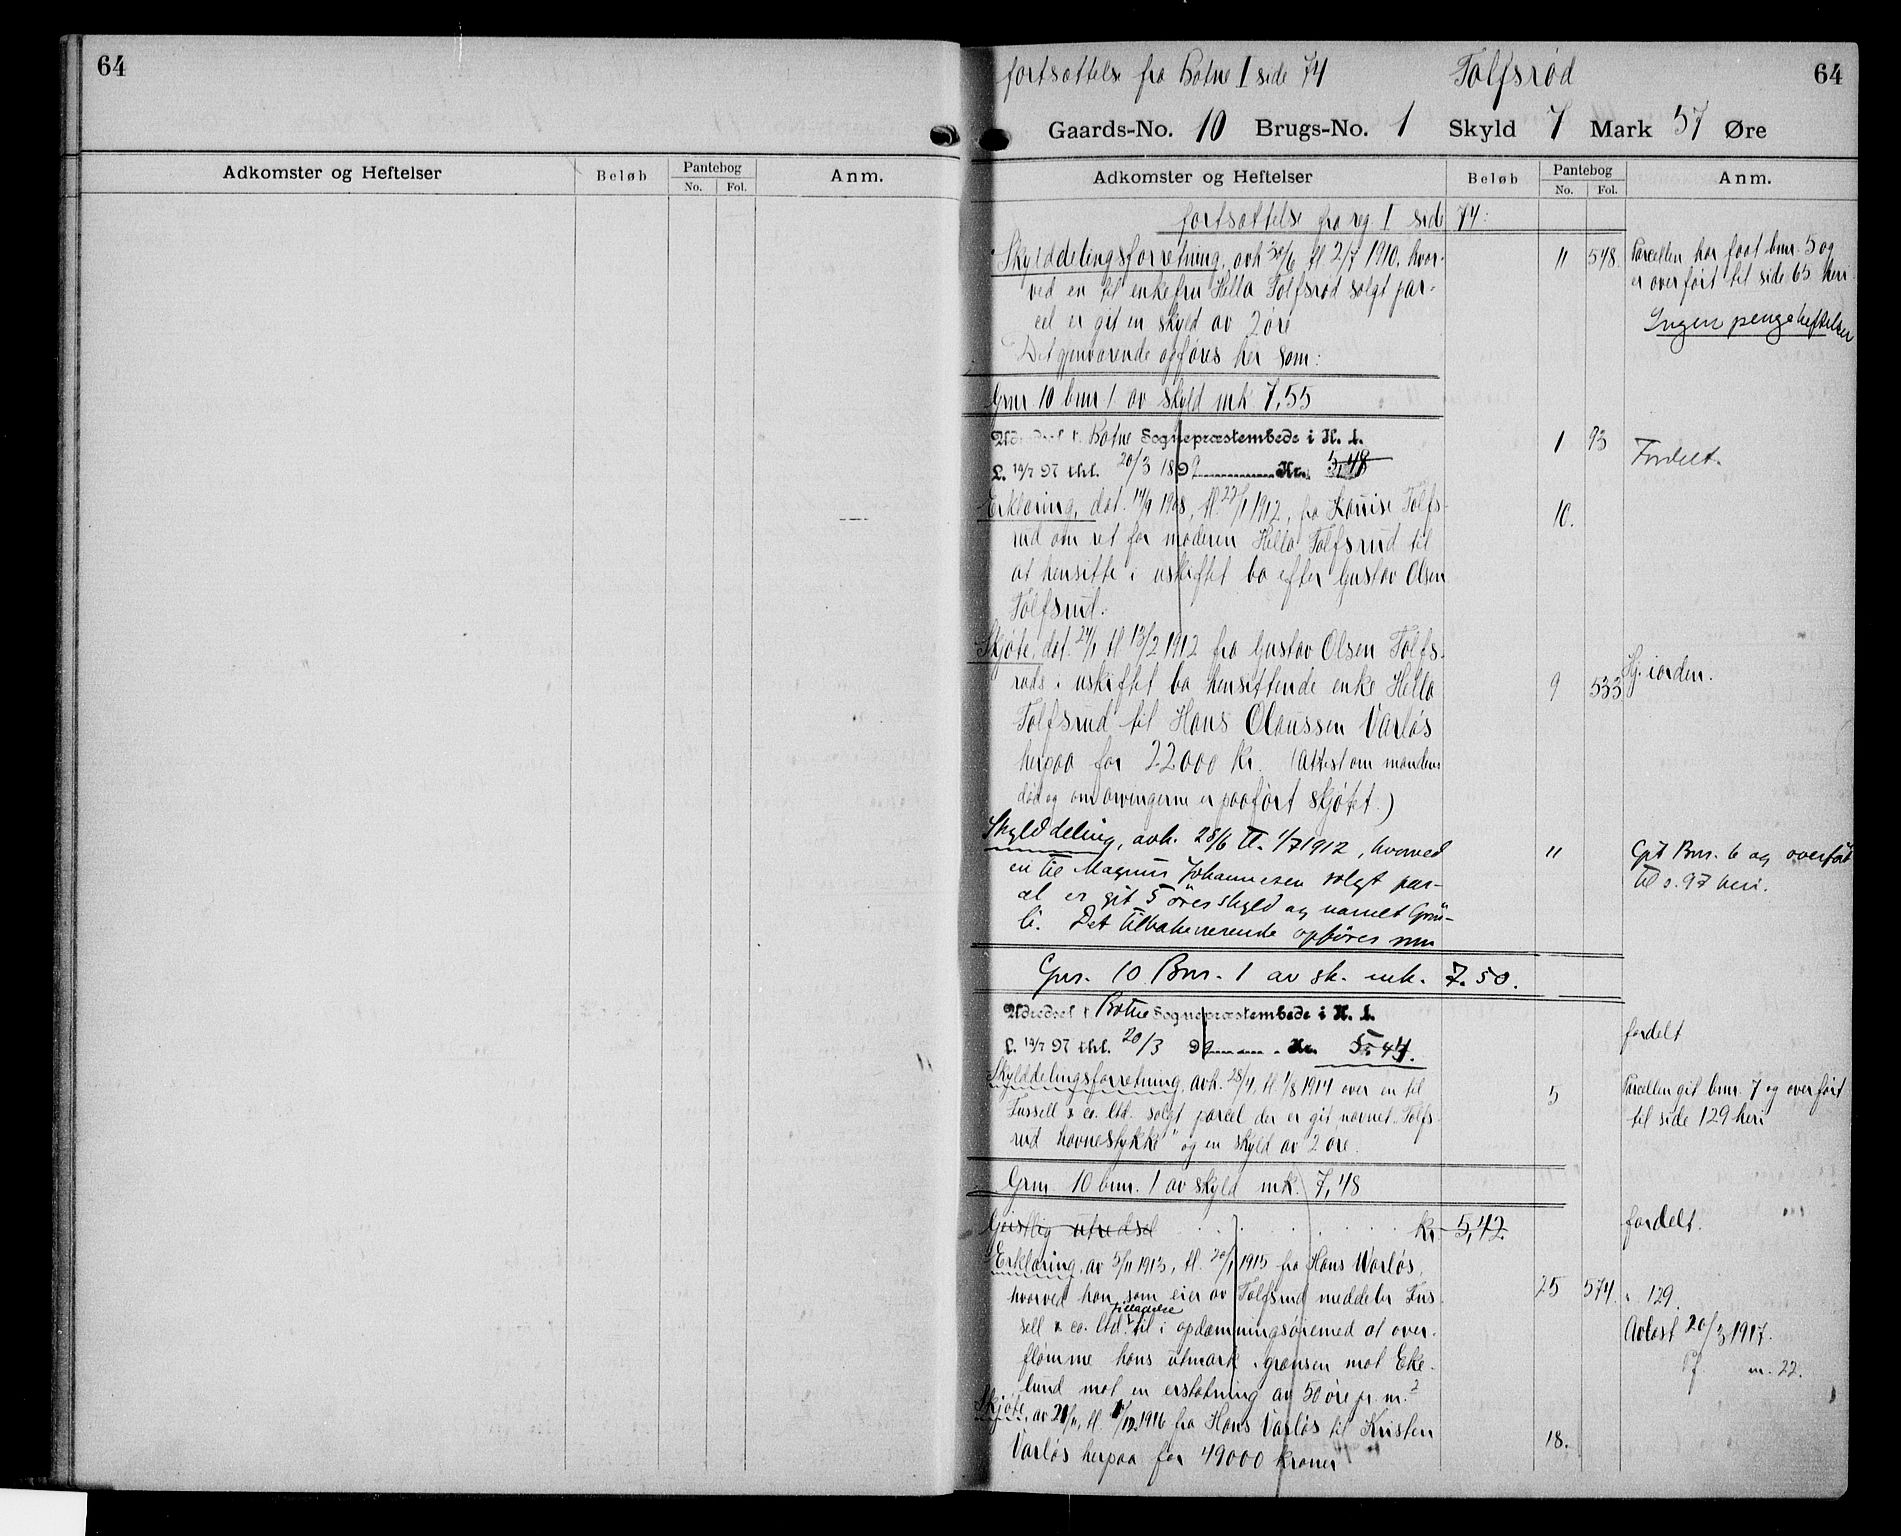 64
Adkomster og Heftelser
Beløb
Pantebog
No. Fol.
Anm.
fortsættelse fra Botne I side 74 Tolfsrød 64
Gaards-No. 10 Brugs-No. 1 Skyld 7 Mark 57 Øre
Adkomster og Heftelser
Beløb
Pantebog
No. Fol.
Anm.
fortsættelse fra reg I side 74:
Skylddelingsforretning, avh 30/6 tl 2/7 1910, hvor- 11 548. Parcellen har faat bnr. 5 og
ved en til enkefru Hella Tolfsrød solgt par- er overført til side 65 heri.
cel er git en skyld av 2 øre Ingen pengeheftelser
Det gjenværende opføres her som:
Gnr 10 bnr 1 av skyld mk 7,55
Udredsel t. Botne Sognepræstembede i H. t. 1 93 Fordelt.
L. 14/7 97 thl. 20/3 1899 Kr. 5,48
Erklæring, dat. 14/9 1908, tl. 27/1 1912, fra Louise Tolfs- 10.
rud om ret for moderen Hella Tolfsrud til
at hensitte i uskiftet bo efter Gustav Olsen
Tolfsrud.
Skjøte, dat. 24/1 tl 13/2 1912 fra Gustav Olsen Tolfs-
ruds i uskiftet bo hensittende enke Hella 9 533 Hj. i orden.
Tolfsrud til Hans Olaussen Varløs
herpaa for 22000 kr. (Attest om mandens
død og om arvingerne er paaført skjøtet.)
Skylddeling, avh. 28/6 tl. 1/7 1912, hvorved 11 Git Bnr. 6 og overført
en til Magnus Johannesen solgt par- til s. 97 heri.
cel er git 5 øres skyld og navnet Grøn-
li. Det tilbakeværende opføres som
Gnr. 10 Bnr. 1 av sk. mk. 7.50.
Udredsel t. Botne Sognepræstembede i H. t. fordelt
L. 14/7 97 thl. 20/3 99 Kr. 5.47.
Skylddelingsforretning, avh. 28/4, tl. 1/8 1914 over en til 5 Parcellen git bnr. 7 og overført
Fussell & co. Ltd. solgt parcel der er git navnet „Tolfs- til side 129 heri
rud havnestykke" og en skyld av 2 øre.
Gnr 10 bnr. 1 av skyld mk. 7,48
Geistlig utredsel kr 5,42 fordelt.
Erklæring, av 5/11 1913, tl. 20/1 1915 fra Hans Varløs,
hvorved han som eier av Tolfsrud meddeler Fus- 25 574. 129.
sell & co. Ltd. tilladelse til i opdæmningsøiemed at over- Avløst 20/3 1917.
flømme hans utmark i grænsen mot Eke- m. 22.
lund mot en erstatning av 50 øre pr. m.²
Skjøte, av 21/11, tl. 1/12 1916 fra Hans Varløs til Kristen 18.
Varløs herpaa for 49000 kroner